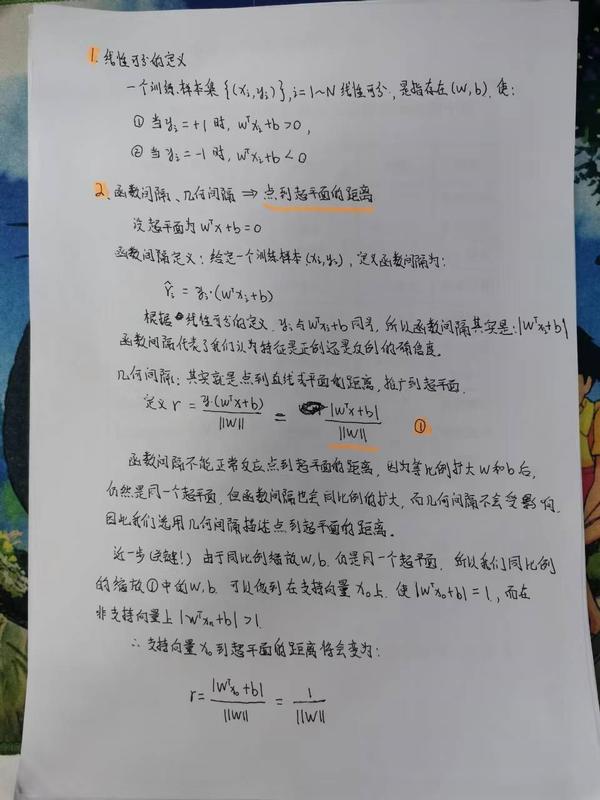 1. 线性可分的定义
一个训练样本集 {(xᵢ,yᵢ)}, i=1~N 线性可分, 是指存在(w,b), 使:
① 当yᵢ=+1时, wᵀxᵢ+b>0,
② 当yᵢ=-1时, wᵀxᵢ+b<0
2. 函数间隔、几何间隔 ⇒ 点到超平面的距离
设超平面为wᵀx+b=0
函数间隔定义: 给定一个训练样本(xᵢ,yᵢ), 定义函数间隔为:
r̂ᵢ = yᵢ·(wᵀxᵢ+b)
根据线性可分的定义, yᵢ与wᵀxᵢ+b同号, 所以函数间隔其实是: |wᵀxᵢ+b|
函数间隔代表了我们认为特征是正例还是反例的确信度。
几何间隔: 其实就是点到直线或平面的距离, 推广到超平面.
定义 r = y·(wᵀx+b)/||w|| = |wᵀx+b|/||w|| ①
函数间隔不能正常反应点到超平面的距离, 因为等比例扩大w和b后,
仍然是同一个超平面, 但函数间隔也会同比例的扩大, 而几何间隔不会受影响.
因此我们选用几何间隔描述点到超平面的距离。
近一步(关键!) 由于同比例缩放w,b. 仍是同一个超平面. 所以我们同比例
的缩放①中的w,b. 可以做到在支持向量x₀上. 使|wᵀx₀+b|=1, 而在
非支持向量上|wᵀxₙ+b|>1.
∴ 支持向量x₀到超平面的距离将会变为:
r = |wᵀx₀+b|/||w|| = 1/||w||